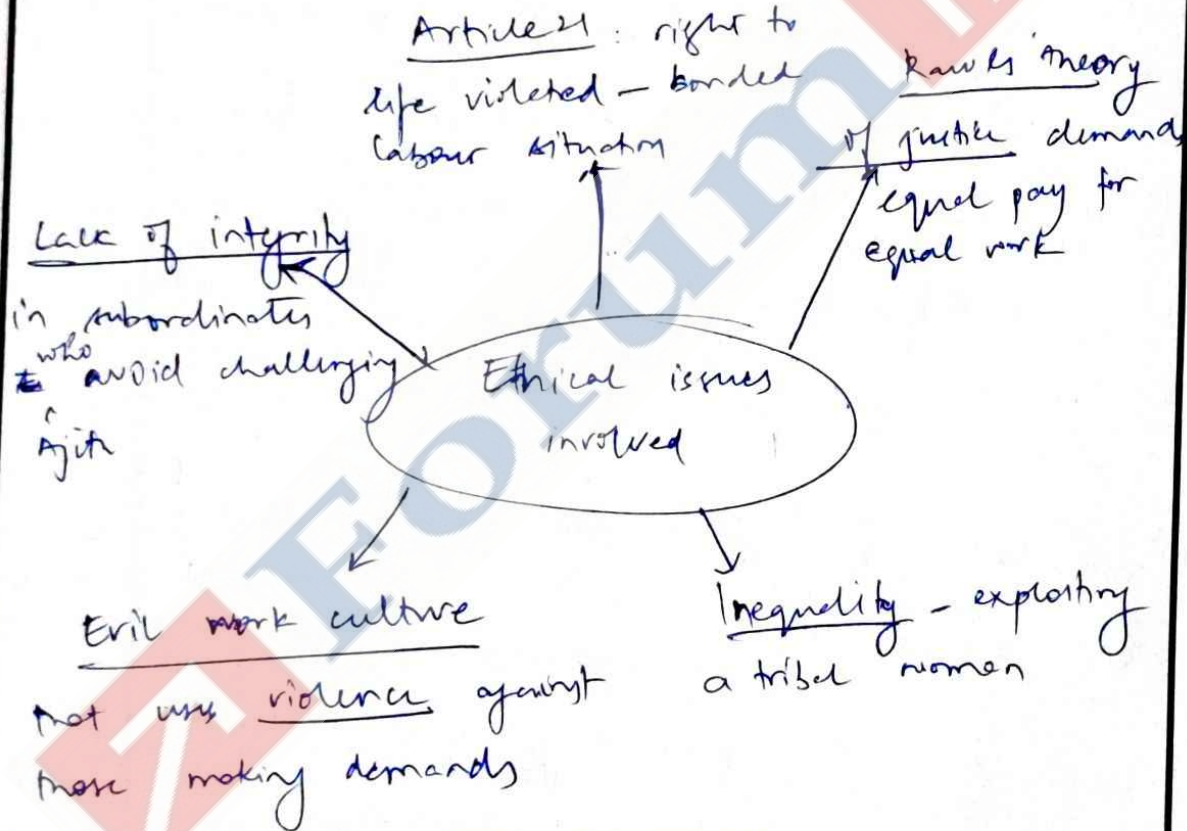 Article 21 : right to
life violated - bonded
labour situation
Rawls theory
of justice demands
equal pay for
equal work
Lack of integrity
in subordinates
who
avoid challenging
Ajith
Ethical issues
involved
Evil work culture
that uses violence against
those making demands
Inequality - exploiting
a tribal women
Forum